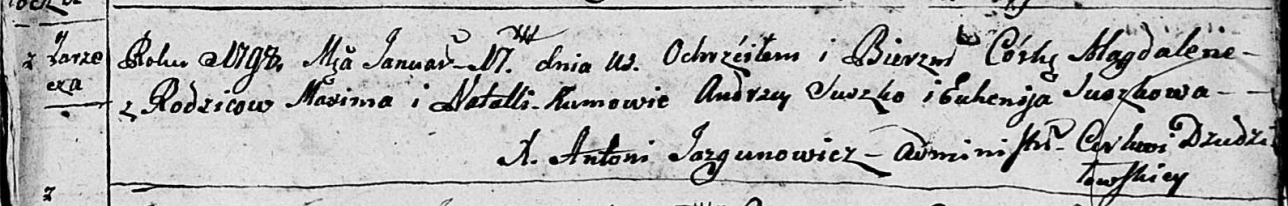 z Zarze
cza
Roku 1798, Mca Januar. 17. dnia us. Ochrzciłem i Bierzm Córkę Magdalenę
z Rodzicow Maxima i Natalli. Kumowie Andrzey Suszko i Euhenija Suszkowa
X. Antoni Jazgunowicz administr. Cerkwi Dzudzi
łowskiey
z